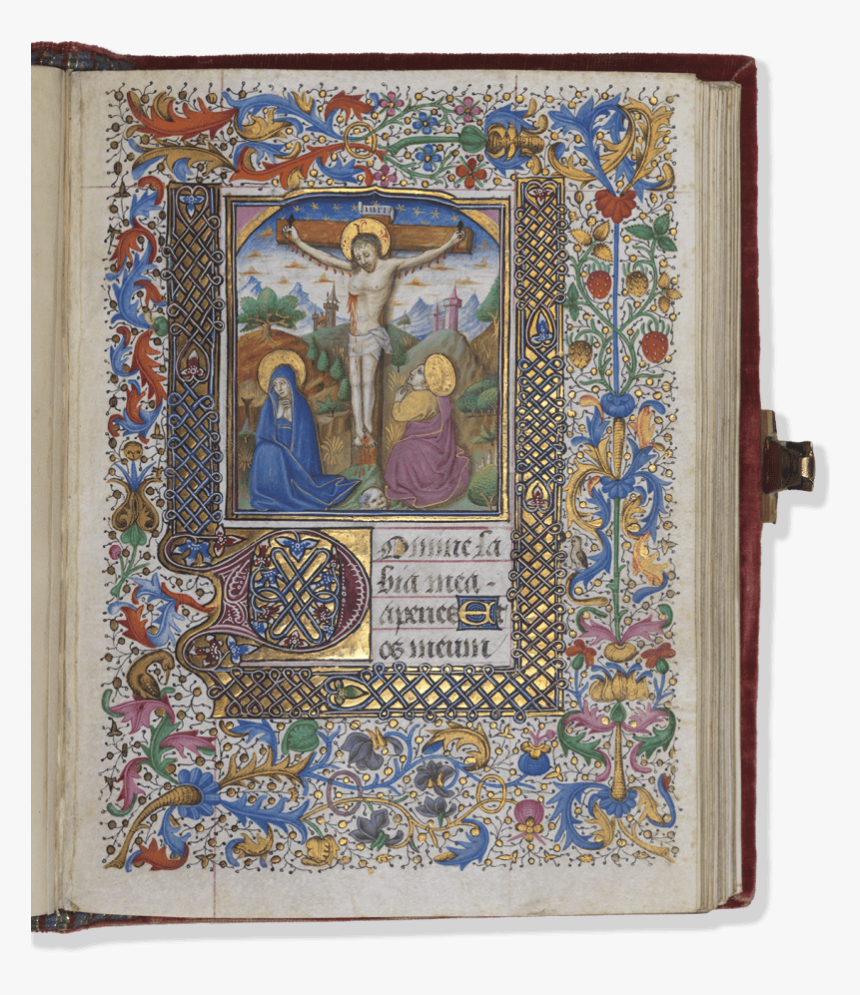 inri
Domine la
bia mea
aperies Et
os meum